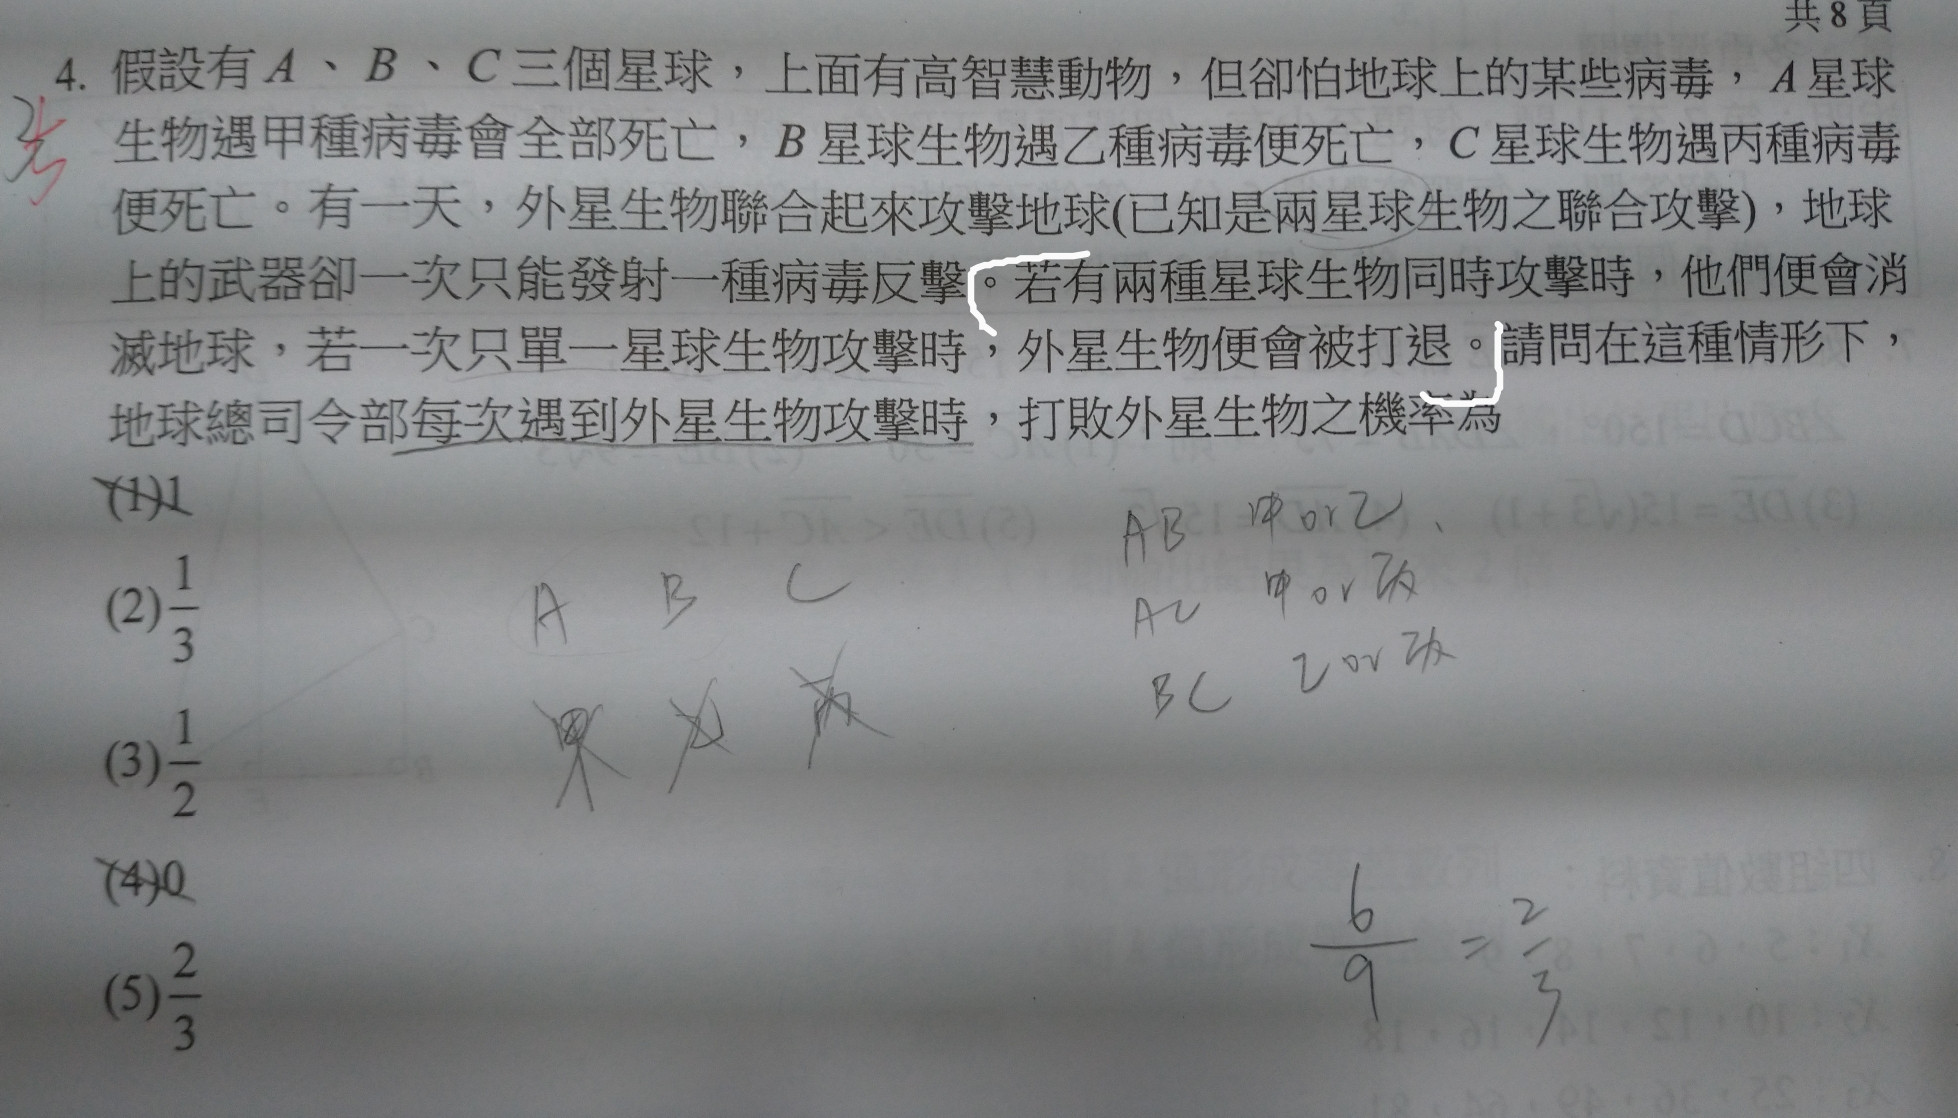 共8頁
4. 假設有A、B、C三個星球，上面有高智慧動物，但卻怕地球上的某些病毒，A星球
考
生物遇甲種病毒會全部死亡，B星球生物遇乙種病毒便死亡，C星球生物遇丙種病毒
便死亡。有一天，外星生物聯合起來攻擊地球(已知是兩星球生物之聯合攻擊)，地球
上的武器卻一次只能發射一種病毒反擊。若有兩種星球生物同時攻擊時，他們便會消
滅地球，若一次只單一星球生物攻擊時，外星生物便會被打退。請問在這種情形下，
地球總司令部每次遇到外星生物攻擊時，打敗外星生物之機率為
(1)1
(2)1/3
(3)1/2
(4)0
(5)2/3
A B C
甲 乙 丙
AB 甲or乙、
AC 甲or丙
BC 乙or丙
6/9 = 2/3